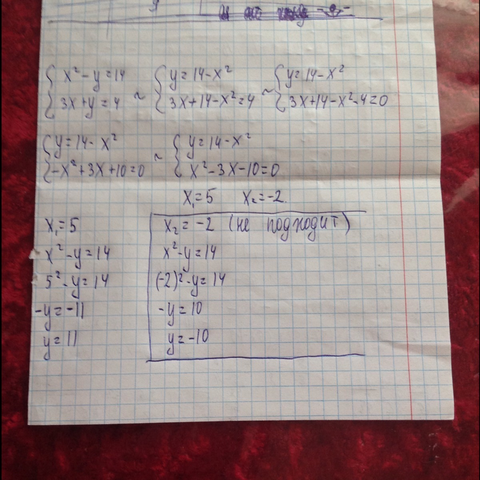 { x² - y = 14 { y = 14 - x² { y = 14 - x²
{ 3x + y = 4 ~ { 3x + 14 - x² = 4 ~ { 3x + 14 - x² - 4 = 0
{ y = 14 - x² { y = 14 - x²
{ -x² + 3x + 10 = 0 ~ { x² - 3x - 10 = 0
x₁ = 5 x₂ = -2
x₁ = 5
x² - y = 14
5² - y = 14
-y = -11
y = 11
x₂ = -2 (не подходит)
x² - y = 14
(-2)² - y = 14
-y = 10
y = -10